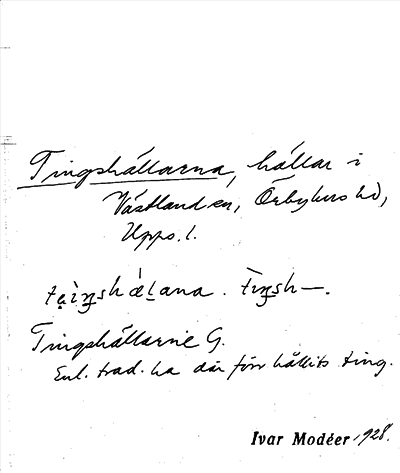 Tingshällarna, hällar i
Västland sn, Örbyhus hd,
Upps. l.
Tingshällarne G.
Enl. trad. ha där förr hållits ting.
Ivar Modéer, 1928.